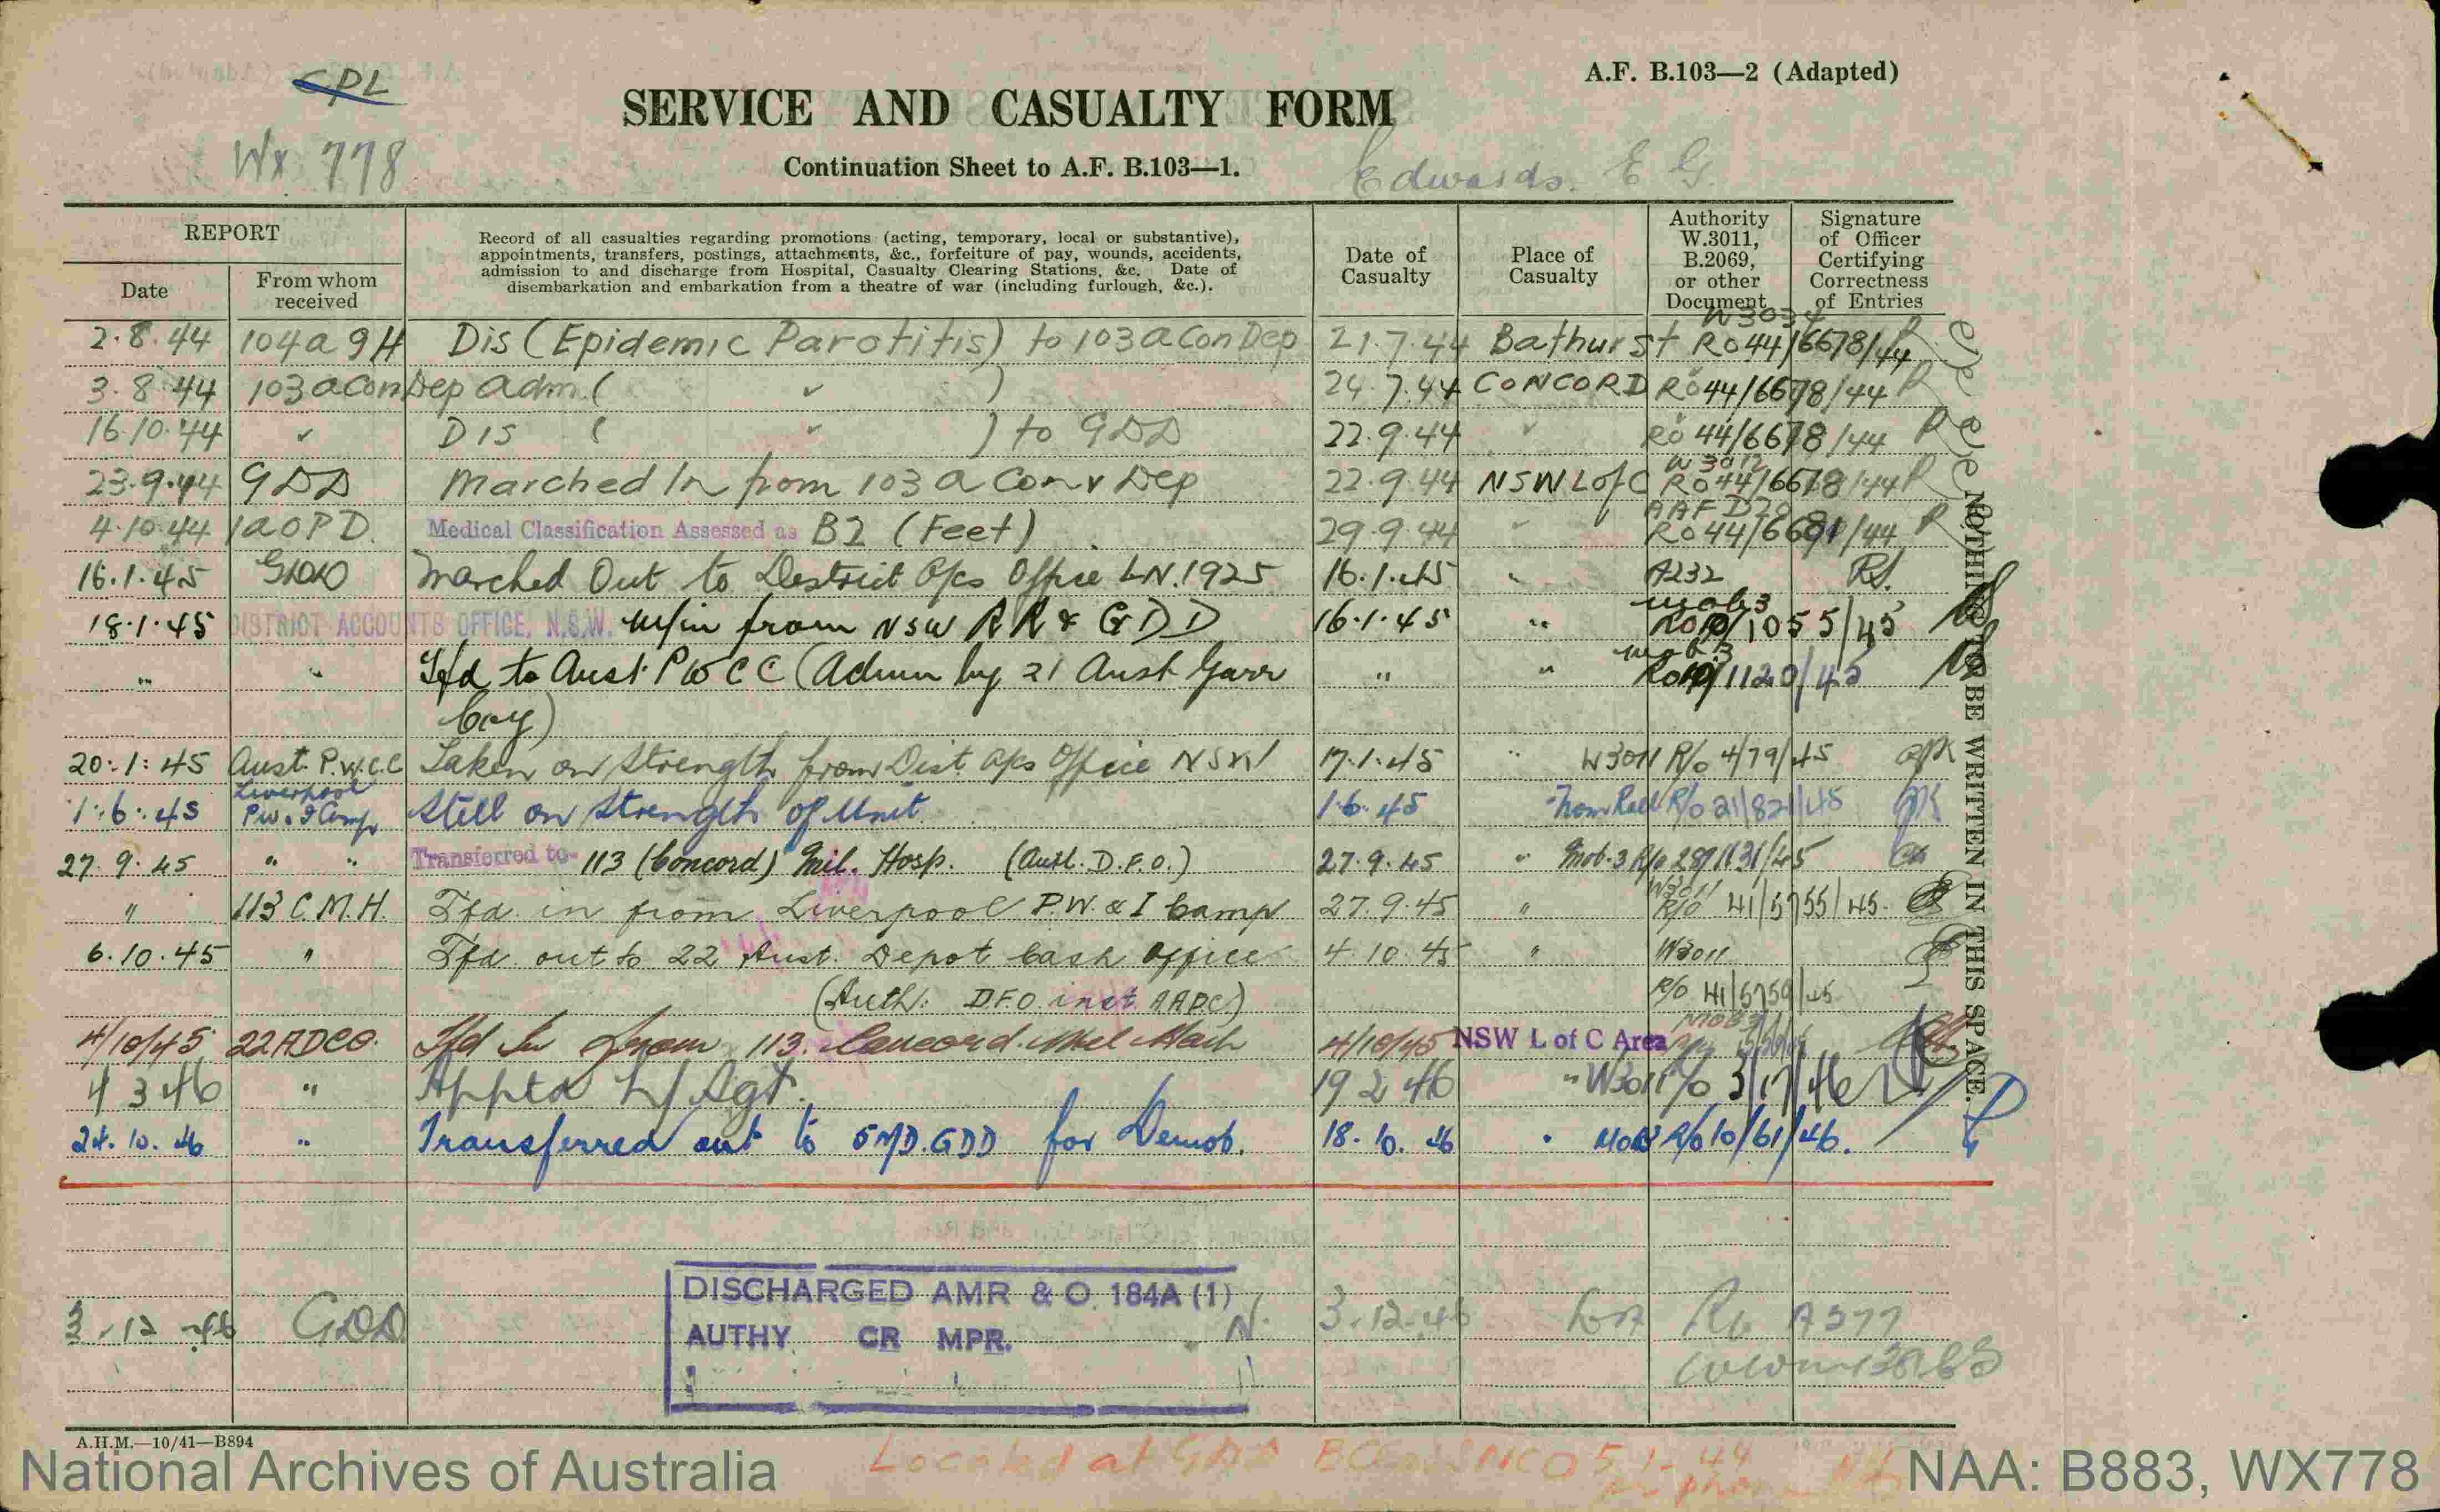 CPL
A.F. B.103—2 (Adapted)
SERVICE AND CASUALTY FORM
Wx 778
Continuation Sheet to A.F. B.103—1.
Edwards. E G.
REPORT
Date
From whom received
Record of all casualties regarding promotions (acting, temporary, local or substantive),
appointments, transfers, postings, attachments, &c., forfeiture of pay, wounds, accidents,
admission to and discharge from Hospital, Casualty Clearing Stations, &c. Date of
disembarkation and embarkation from a theatre of war (including furlough, &c.).
Date of Casualty
Place of Casualty
Authority W.3011, B.2069, or other Document
Signature of Officer Certifying Correctness of Entries
W3034
2.8.44 104 a g H Dis (Epidemic Parotitis) to 103 a Con Dep 21.7.44 Bathurst Ro 44/6678/44
3.8.44 103 a Con Dep adm. ( " ) 24.7.44 CONCORD Ro 44/6678/44
16.10.44 " Dis ( " ) to GDD 22.9.44 " Ro 44/6678/44
W 3012
23.9.44 GDD Marched In from 103 a Conv Dep 22.9.44 NSW L of C Ro 44/6678/44
AAF D20
4.10.44 1 a O P D. Medical Classification Assessed as B2 (Feet) 29.9.44 " Ro 44/6681/44
16.1.45 GDD Marched Out to District A/cs Office LN.1925 16.1.45 " A232 RS.
Mob 3
18.1.45 DISTRICT ACCOUNTS OFFICE, N.S.W. M/in from NSW RR & GDD 16.1.45 " Ro 10/1055/45
Mob 3
" " Tfd to Aust P W C C (Admin by 21 Aust Garr " " Ro 10/1120/45
Coy)
20.1.45 Aust. P.W.C.C Taken on Strength from Dist A/cs Office NSW 17.1.45 " W3011 R/o 4/79/45
Liverpool
1.6.45 P.W. & I Camp Still on Strength of Unit 1.6.45 Nom Roll R/o 21/821/45
27.9.45 " " Transferred to 113 (Concord) Mil. Hosp. (Auth. D.F.O.) 27.9.45 " Mob.3 R/o 28/1131/45
W3011
" 113 C.M.H. Tfd in from Liverpool P.W. & I Camp 27.9.45 " R/O 41/5755/45.
6.10.45 " Tfd out to 22 Aust. Depot Cash Office 4.10.45 " W3011
(Auth: D.F.O. inst. AAPC) R/o 41/5759/45
MOB3
4/10/45 22ADCO. Tfd In from 113. Concord. 4/10/45 NSW L of C Area
4 3 46 " Apptd L/Sgt. 19 2 46 " W3011 R/o 3/17/46
24.10.46 " Transferred out to 5MD.GDD for Demob. 18.10.46 " MOB3 R/o 10/61/46.
NOTHING TO BE WRITTEN IN THIS SPACE.
DISCHARGED AMR & O. 184A (1)
3-12-46 GDD AUTHY CR MPR. N. 3.12.46 Ro A277
A.H.M.—10/41—B894
Located at GDD 5.1.44
National Archives of Australia
NAA: B883, WX778